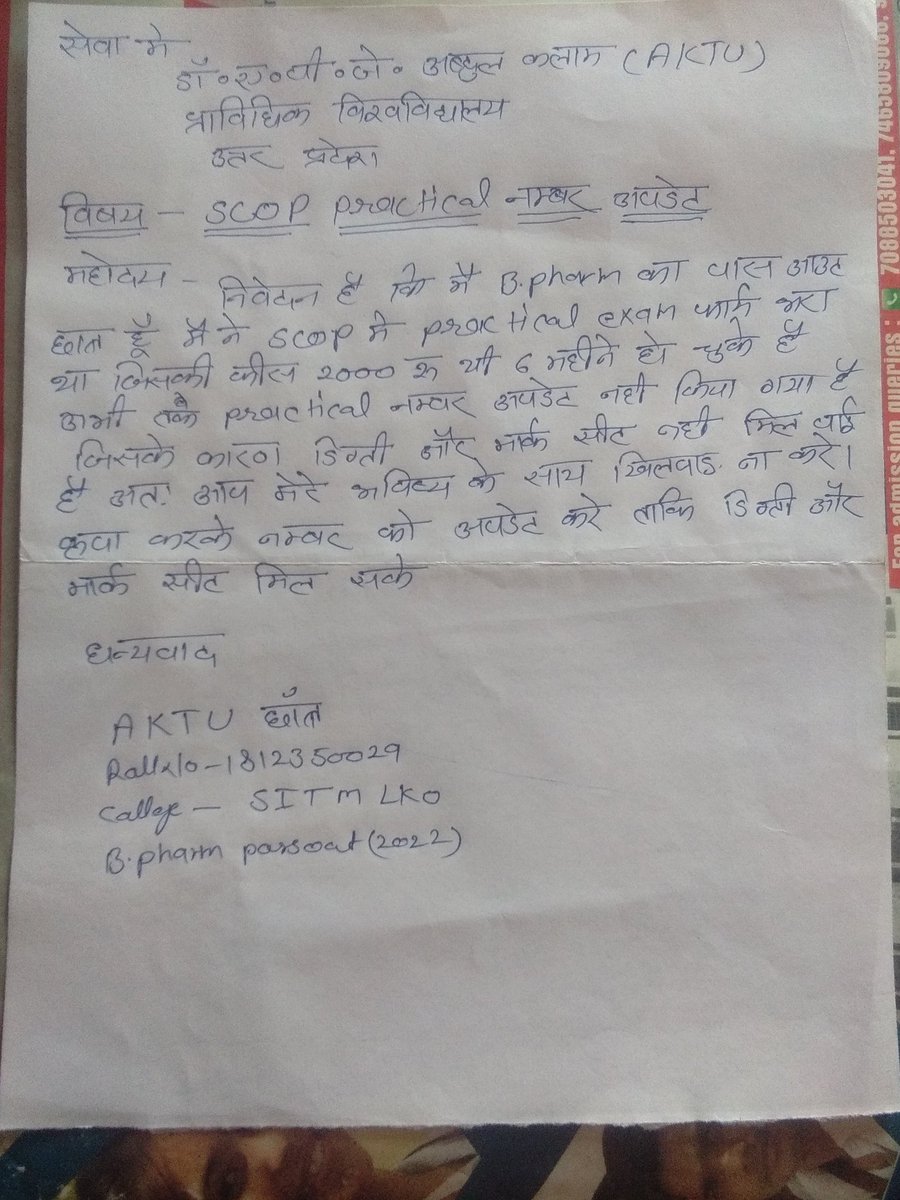 सेवा मे
डॉ॰ ए॰ पी॰ जे॰ अब्दुल कलाम (AKTU)
प्राविधिक विश्वविद्यालय
उत्तर प्रदेश।
विषय - SCOP practical नम्बर अपडेट
महोदय - निवेदन है कि मै B.pharm का पास आउट
छात्र हूँ मै ने SCOP मे practical exam फार्म भरा
था जिसकी फीस 2000 रु थी 6 महीने हो चुके है
अभी तक practical नम्बर अपडेट नही किया गया है
जिसके कारण डिग्री और मार्क सीट नही मिल पाई
है अतः आप मेरे भविष्य के साथ खिलवाड ना करे।
कृपा करके नम्बर को अपडेट करे ताकि डिग्री और
मार्क सीट मिल सके
धन्यवाद
AKTU छाँत्र
Roll No - 1812350029
College - SITM LKO
B.pharm pasout (2022)
For admission queries : 7088503041, 7465809080, s